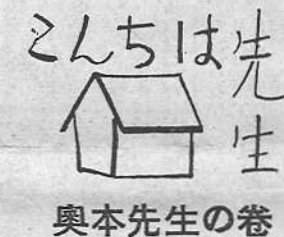 こんちは先生
奥本先生の巻